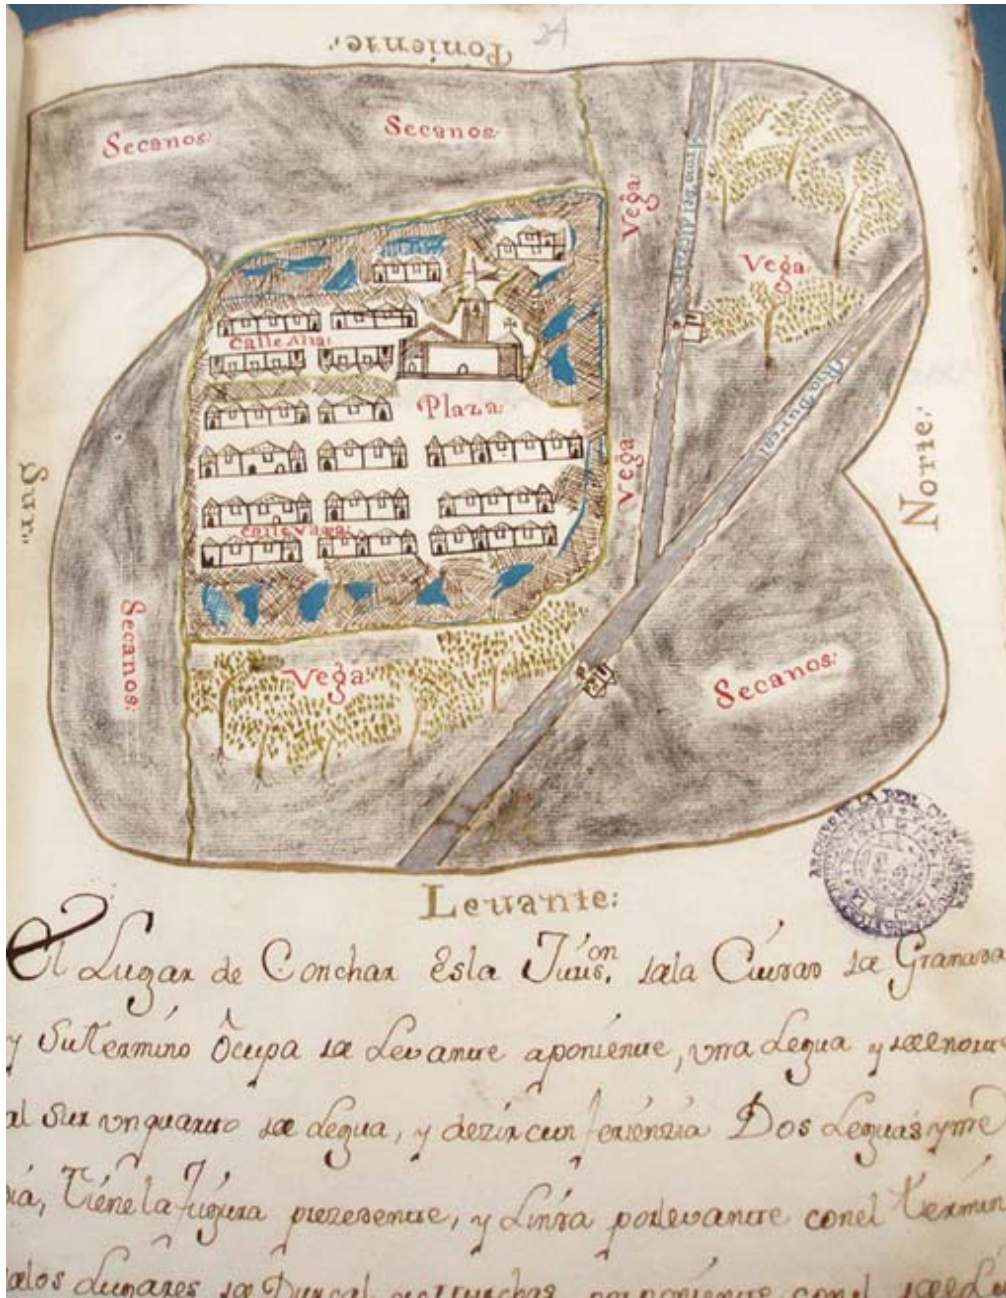 24
Poniente:
Secanos:
Secanos:
Vega:
Vega:
Calle Alta:
Plaza:
Rio Durcal
Norte:
Sur:
Vega
Calle Vaxa:
Secanos:
Vega:
Secanos:
Levante:
El Lugar de Conchar Es la Juris.on de la Ciudad de Granada
y Su Termino Ocupa de Levante a poniente, vna Legua y de el norte
al Sur vn quarto de Legua, y de zircunferienzia Dos Leguas y me
dia, Tiene la figura prezedente, y Linda por levante con el Termin
de los Lugares de Durcal poniente con el de el